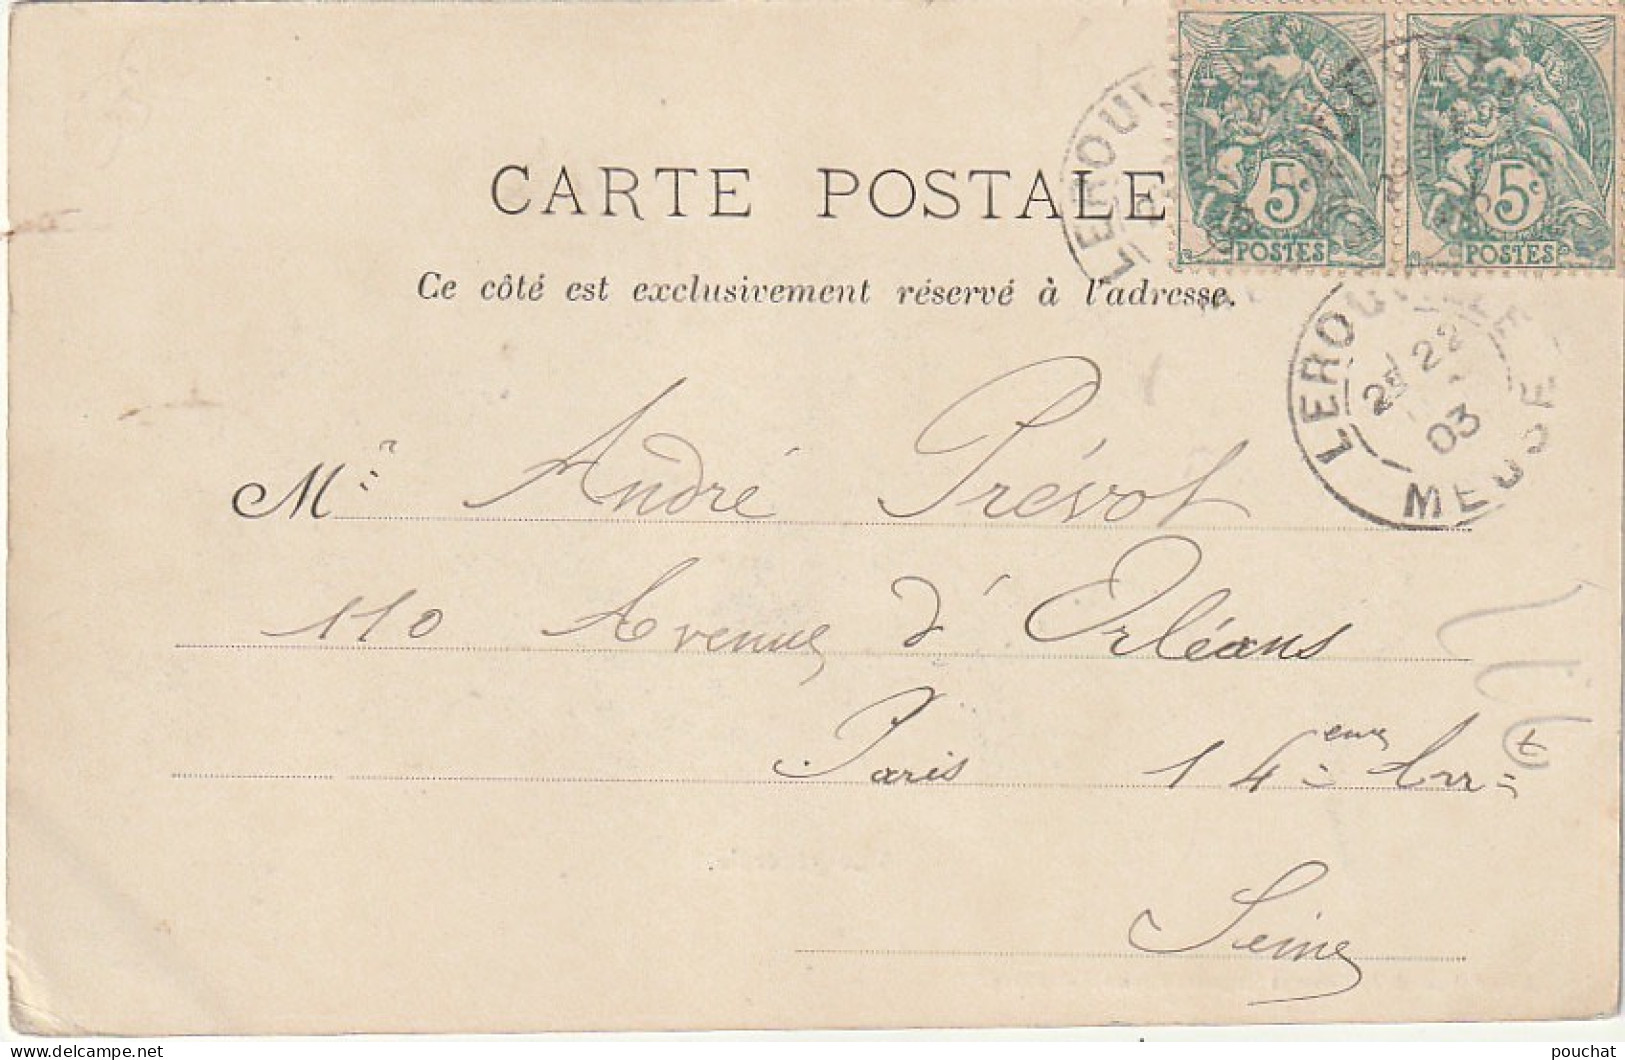 CARTE POSTALE
Ce côté est exclusivement réservé à l'adresse.
5c 5c
POSTES POSTES
LEROUVILLE
22
03
MEUSE
Mr André Prévot
110 Avenue d'Orléans
Paris 14eme Arr
Seine
pouchat